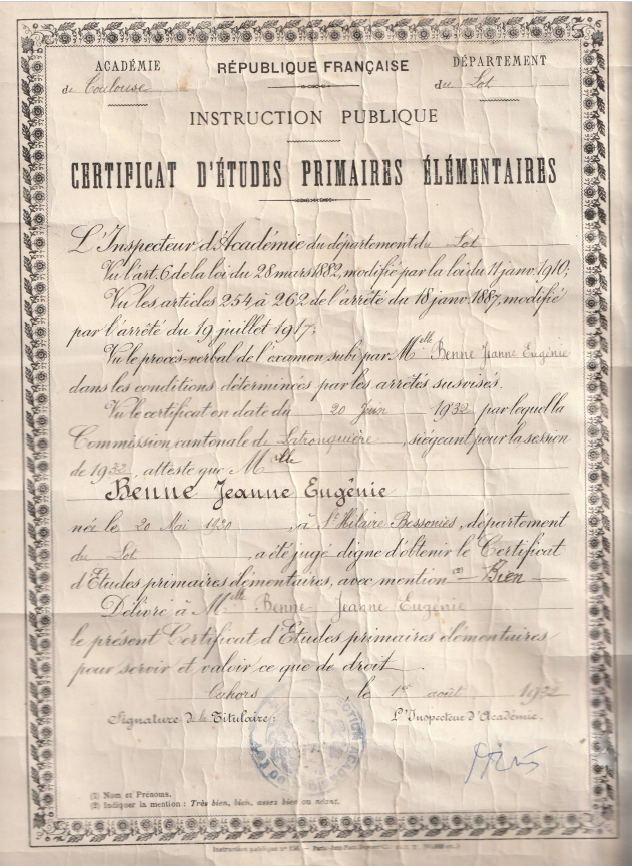 ACADÉMIE
de Toulouse
RÉPUBLIQUE FRANÇAISE
DÉPARTEMENT
du Lot
INSTRUCTION PUBLIQUE
CERTIFICAT D'ÉTUDES PRIMAIRES ÉLÉMENTAIRES
L'Inspecteur d'Académie du département du Lot
Vu l'art. 6 de la loi du 28 mars 1882, modifié par la loi du 11 janv. 1910;
Vu les articles 254 à 262 de l'arrêté du 18 janv. 1887, modifié
par l'arrêté du 19 juillet 1917;
Vu le procès-verbal de l'examen subi par Melle Benne Jeanne Eugénie
dans les conditions déterminées par les arrêtés susvisés.
Vu le certificat en date du 20 Juin 1932 par lequel la
Commission cantonale de Latronquière, siégeant pour la session
de 1932, atteste que Melle
Benne Jeanne Eugénie
née le 20 Mai 1920, à St Hilaire Bessonies, département
du Lot, a été jugé digne d'obtenir le Certificat
d'Études primaires élémentaires, avec mention (2) Bien
Délivré à Melle Benne Jeanne Eugénie
le présent Certificat d'Études primaires élémentaires
pour servir et valoir ce que de droit.
Cahors, le 1er août 1932
Signature de la Titulaire:
L'Inspecteur d'Académie.
(1) Nom et Prénoms.
(2) Indiquer la mention : Très bien, bien, assez bien ou néant.
Instruction publique